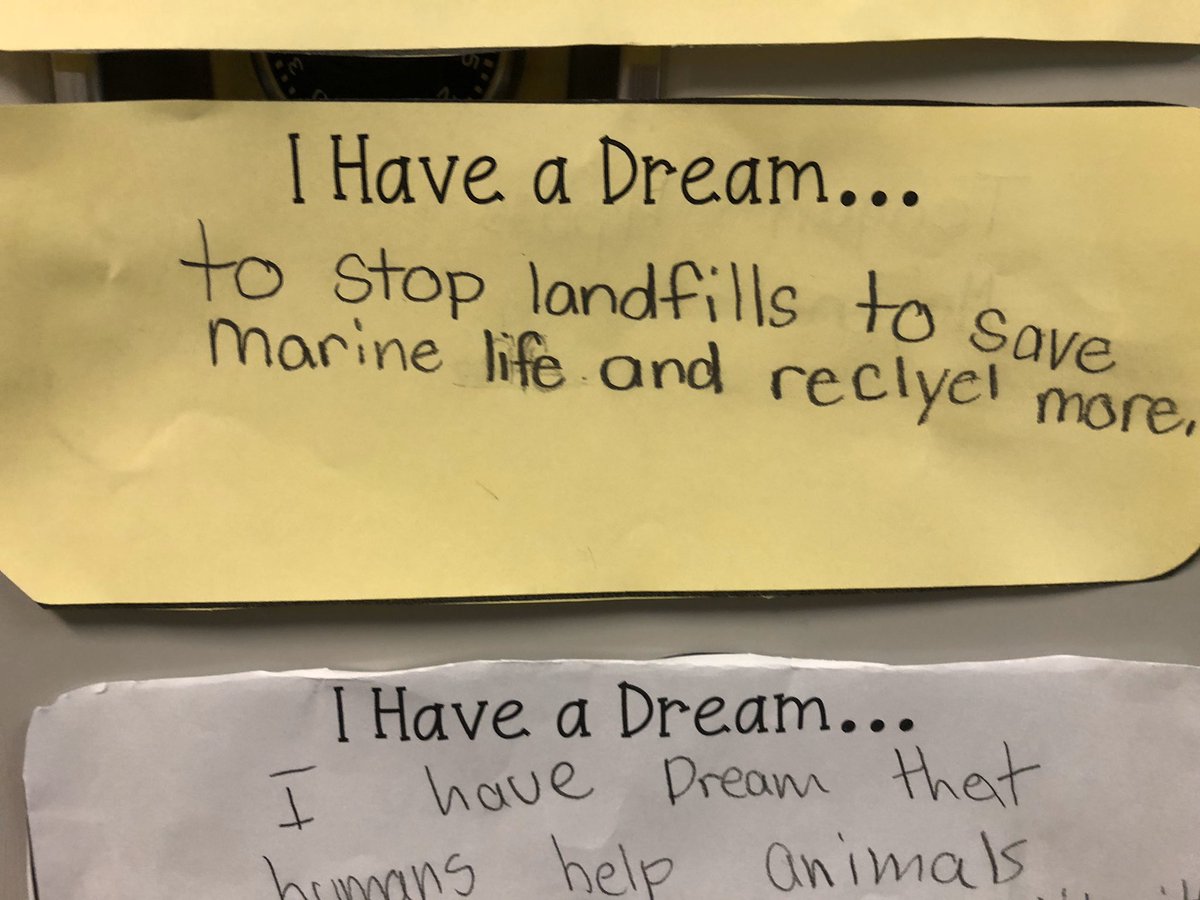 I Have a Dream...
to stop landfills to save
marine life and reclyel more.
I Have a Dream...
I have Dream that
humans help animals